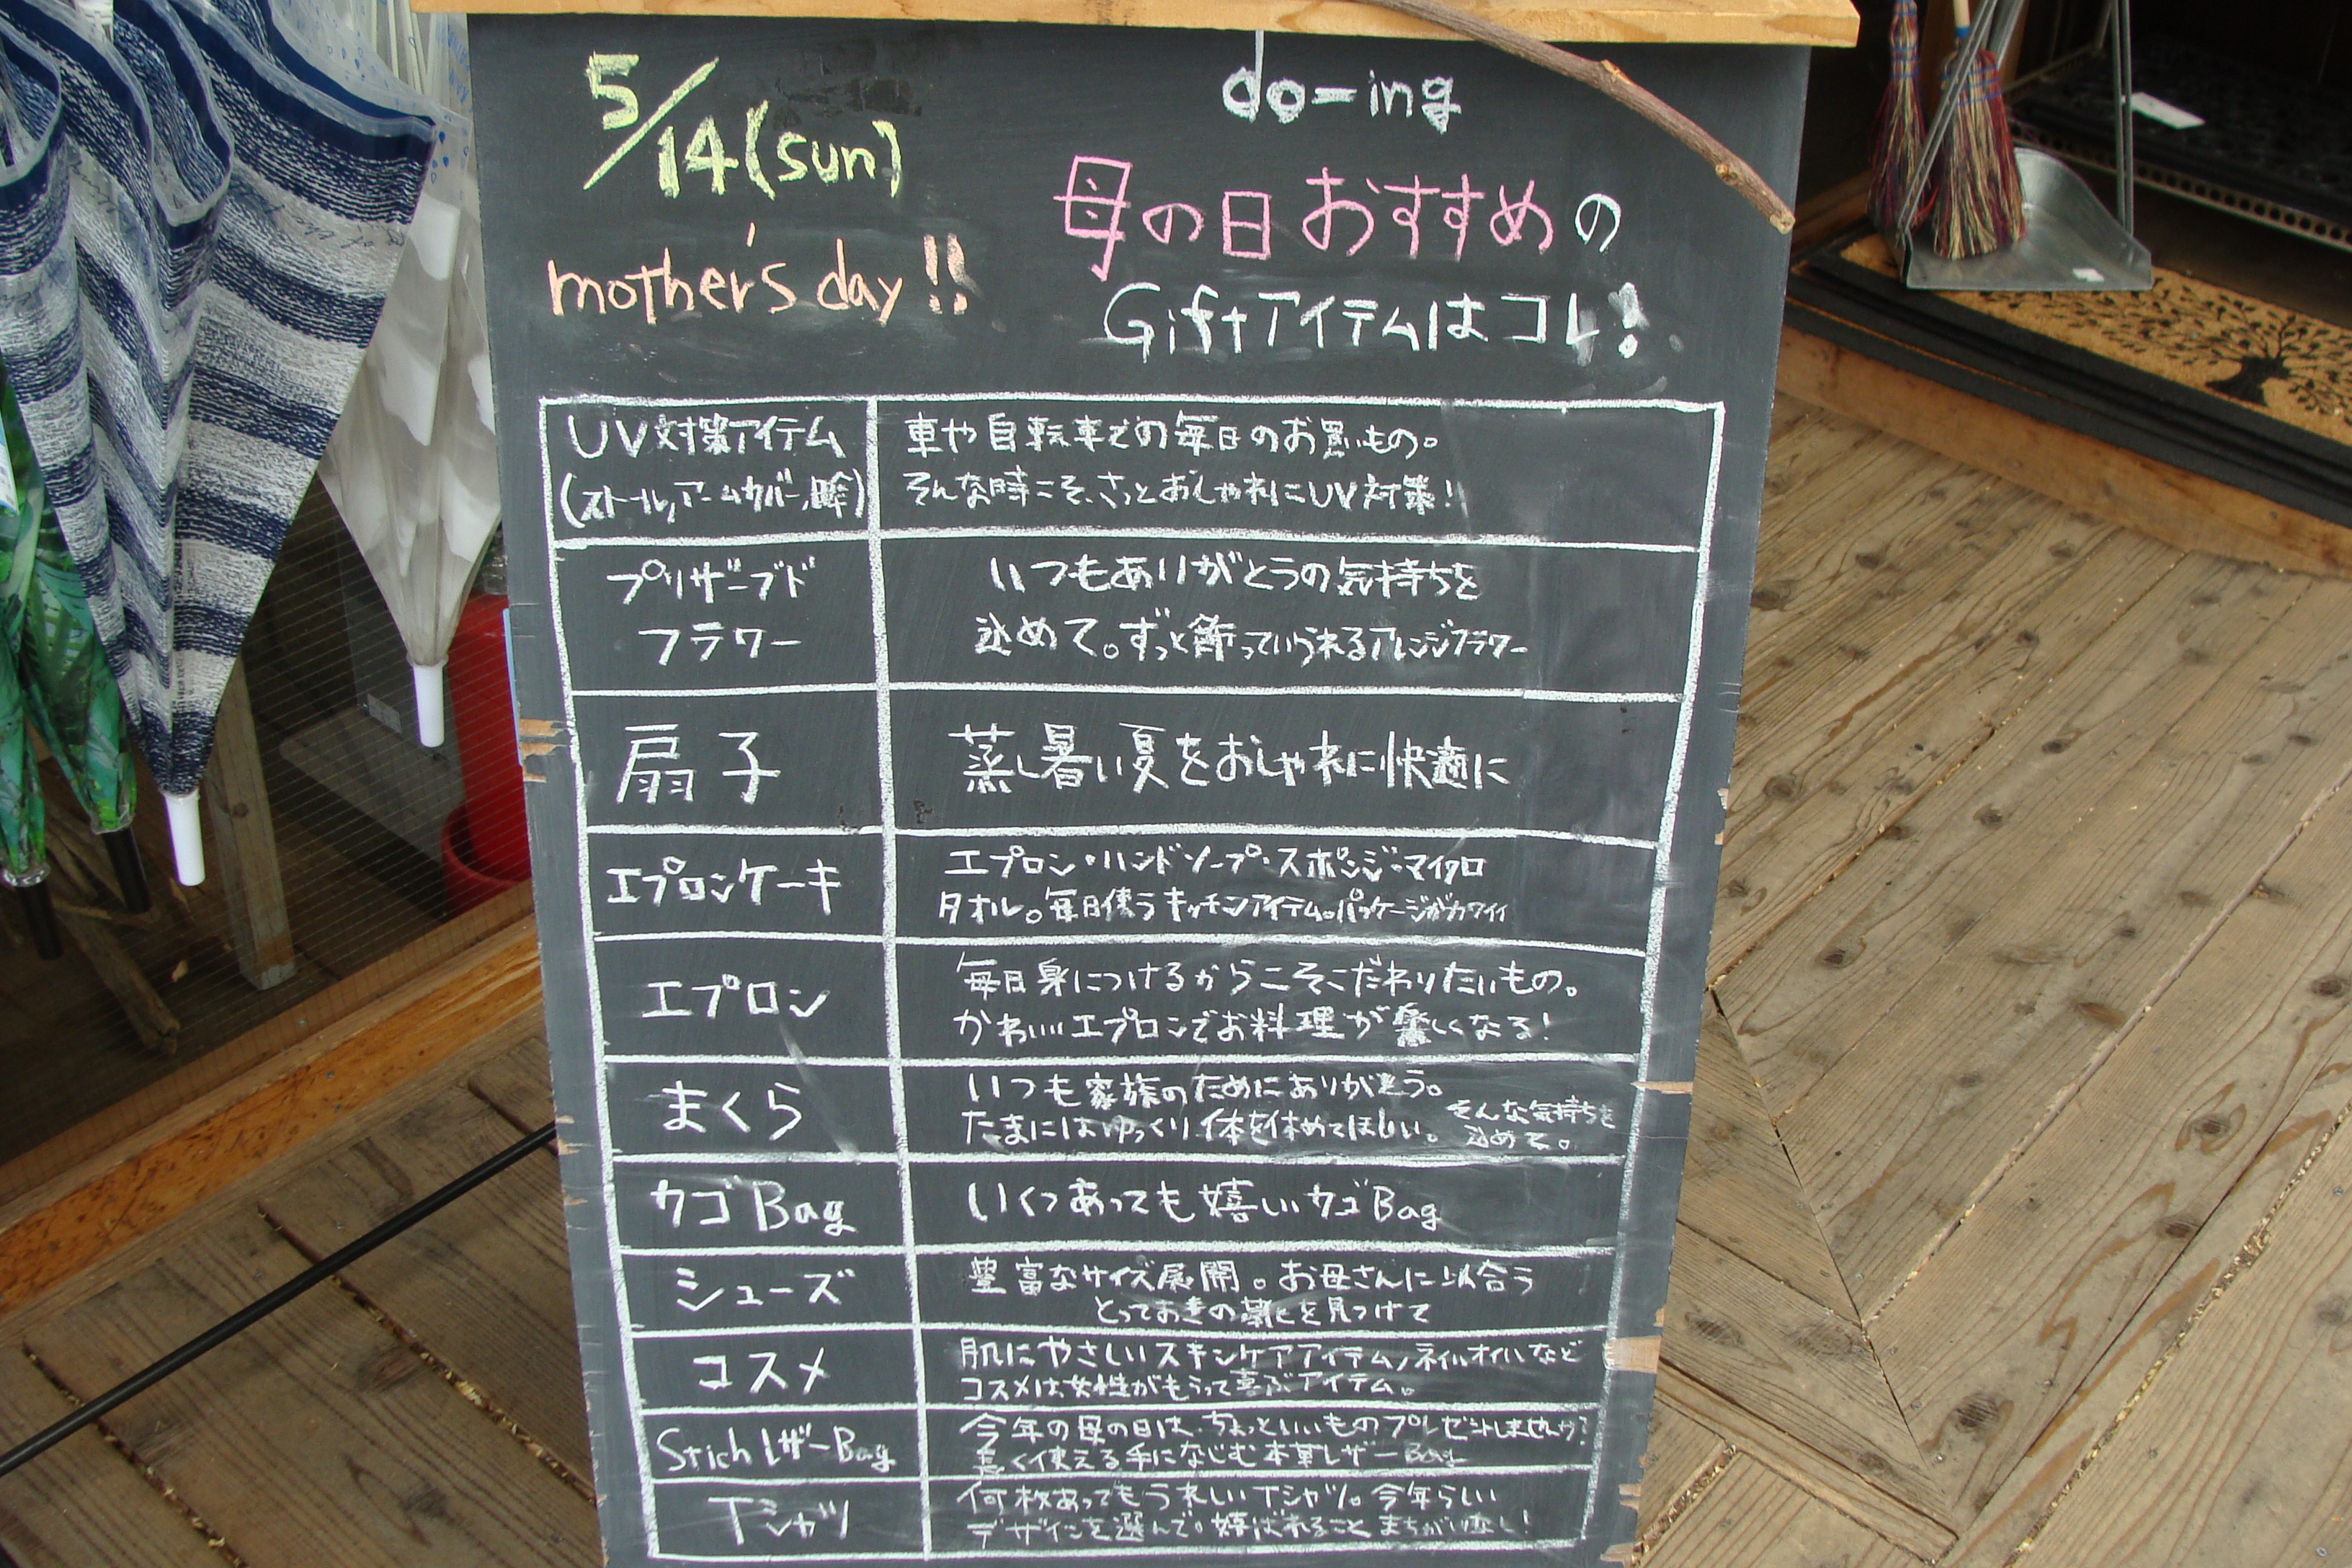 5/14(sun)
mother's day!!
do-ing
母の日おすすめの
Giftアイテムはコレ!
UV対策アイテム
(ストール,アームカバー,傘)
車や自転車での毎日のお買いもの。
そんな時こそ、さっとおしゃれにUV対策!
プリザーブド
フラワー
いつもありがとうの気持ちを
込めて。ずっと飾っていられるアレンジフラワー
扇子
蒸し暑い夏をおしゃれに快適に
エプロンケーキ
エプロン・ハンドソープ・スポンジ・マイクロ
タオル。毎日使うキッチンアイテム。パッケージがカワイイ
エプロン
毎日身につけるからこそこだわりたいもの。
かわいいエプロンでお料理が楽しくなる!
まくら
いつも家族のためにありがとう。
たまにはゆっくり体を休めてほしい。
そんな気持ちを
込めて。
カゴBag
いくつあっても嬉しいカゴBag
シューズ
豊富なサイズ展開。お母さんに似合う
とっておきの靴を見つけて
コスメ
肌にやさしいスキンケアアイテム,ネイルオイルなど
コスメは女性がもらって喜ぶアイテム。
StichレザーBag
今年の母の日は、ちょっといいものプレゼントしませんか?
長く使える手になじむ本革レザーBag
Tシャツ
何枚あってもうれしいTシャツ。今年らしい
デザインを選んで。喜ばれることまちがいなし!